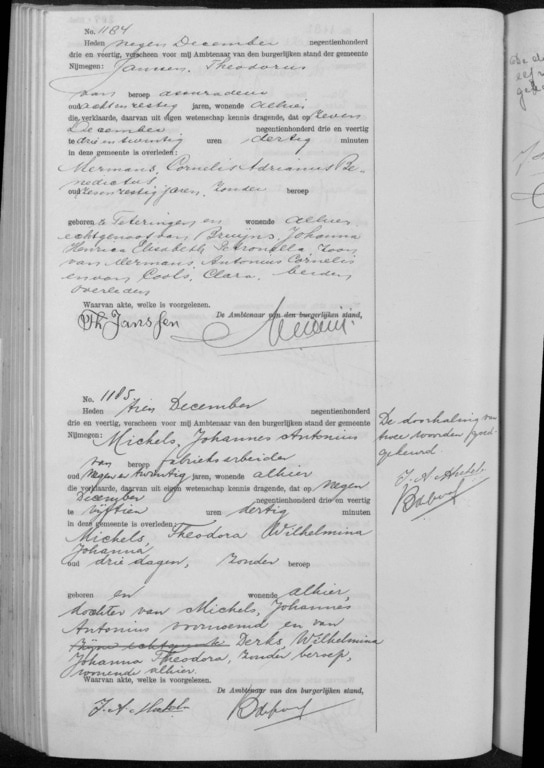 No. 1184
Heden negen December negentienhonderd
drie en veertig, verscheen voor mij Ambtenaar van den burgerlijken stand der gemeente
Nijmegen: Janssen, Theodorus
van beroep assuradeur
oud achtenzestig jaren, wonende alhier
die verklaarde, daarvan uit eigen wetenschap kennis dragende, dat op zeven
December negentienhonderd drie en veertig
te drie en twintig uren dertig minuten
in deze gemeente is overleden:
Mermans, Cornelis Adrianus Be-
nedictus,
oud zevenenzestig jaren, zonder beroep
geboren te Teteringen en wonende alhier,
echtgenoot van Bruijns, Johanna
Henrica Elisabeth Petronella, zoon
van Mermans, Antonius Cornelis
en van Cools, Clara, beiden
overleden
Waarvan akte, welke is voorgelezen.
De Ambtenaar van den burgerlijken stand,
Th Janssen
No. 1185
Heden tien December negentienhonderd
drie en veertig, verscheen voor mij Ambtenaar van den burgerlijken stand der gemeente
Nijmegen: Michels, Johannes Antonius
van beroep fabrieksarbeider
oud negen en twintig jaren, wonende alhier
die verklaarde, daarvan uit eigen wetenschap kennis dragende, dat op negen
December negentienhonderd drie en veertig
te vijftien uren dertig minuten
in deze gemeente is overleden:
Michels, Theodora Wilhelmina
Johanna,
oud drie dagen, zonder beroep
geboren en wonende alhier,
dochter van Michels, Johannes
Antonius voornoemd en van
zijne echtgenoote Derks, Wilhelmina
Johanna Theodora, zonder beroep,
wonende alhier.
Waarvan akte, welke is voorgelezen.
De Ambtenaar van den burgerlijken stand,
De doorhaling van
twee woorden goed-
gekeurd